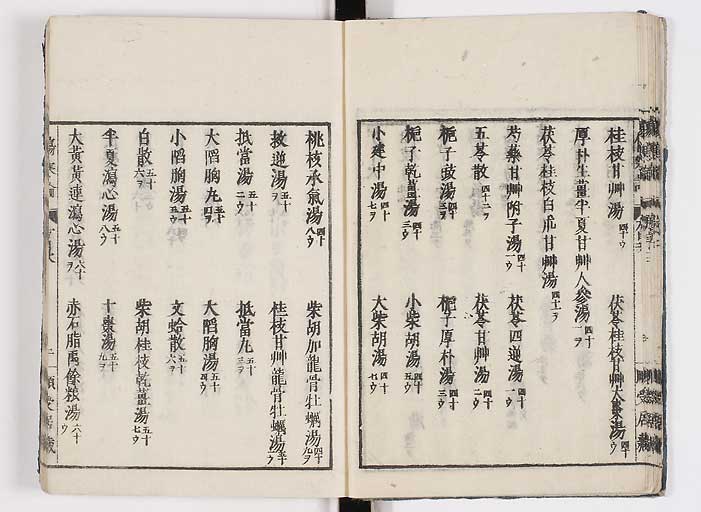 桂枝甘艸湯 四十ウ　茯苓桂枝甘艸大棗湯 四十ウ
厚朴生薑半夏甘艸人參湯 四十一ヲ
茯苓桂枝白朮甘艸湯 四十一ヲ
芍藥甘艸附子湯 四十一ウ　茯苓四逆湯 四十一ウ
五苓散 四十二ヲ　茯苓甘艸湯 四十二ウ
梔子豉湯 四十三ヲ　梔子厚朴湯 四十三ウ
梔子乾薑湯 四十三ウ　小柴胡湯 四十五ウ
小建中湯 四十七ヲ　大柴胡湯 四十七ウ
桃核承氣湯 四十八ウ　柴胡加龍骨牡蠣湯 四十九ヲ
救逆湯 五十ヲ　桂枝甘艸龍骨牡蠣湯 五十ウ
抵當湯 五十二ウ　抵當丸 五十三ヲ
大陷胸丸 五十四ヲ　大陷胸湯 五十四ウ
小陷胸湯 五十五ウ　文蛤散 五十六ヲ
白散 五十六ヲ　柴胡桂枝乾薑湯 五十七ウ
半夏瀉心湯 五十八ウ　十棗湯 五十九ヲ
大黃黃連瀉心湯 六十ヲ　赤石脂禹餘粮湯 六十